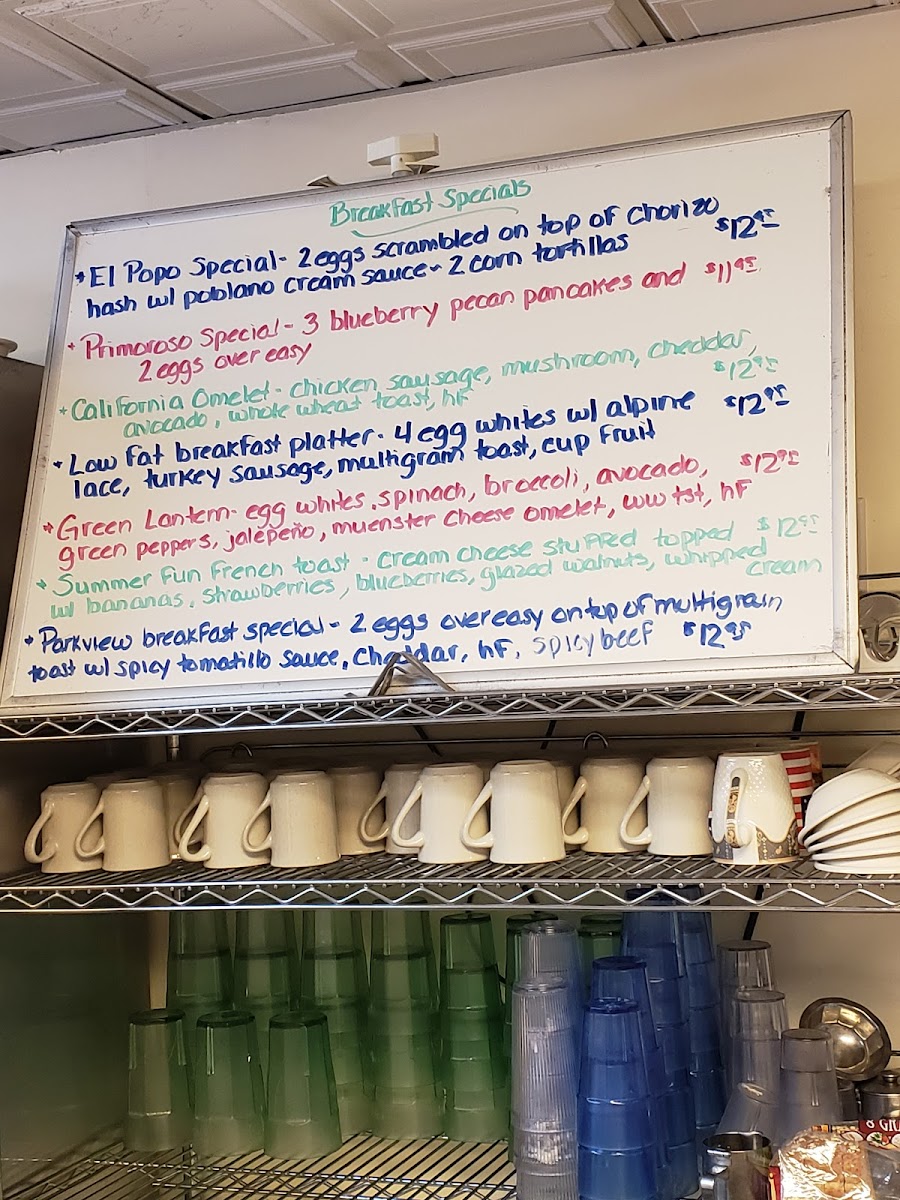 Breakfast Specials
* El Popo Special - 2 eggs scrambled on top of chorizo $12.95
hash w/ poblano cream sauce - 2 corn tortillas
* Primoroso Special - 3 blueberry pecan pancakes and $11.95
2 eggs over easy
* California Omelet - chicken sausage, mushroom, cheddar,
avocado, whole wheat toast, hF $12.95
* Low fat breakfast platter - 4 egg whites w/ alpine $12.95
lace, turkey sausage, multigrain toast, cup fruit
* Green Lantern - egg whites, spinach, broccoli, avocado, $12.95
green peppers, jalepeño, muenster cheese omelet, ww tst, hF
* Summer Fun French toast - cream cheese stuffed topped $12.95
w/ bananas, strawberries, blueberries, glazed walnuts, whipped
cream
* Parkview breakfast special - 2 eggs over easy on top of multigrain
toast w/ spicy tomatillo sauce, cheddar, hF, spicy beef $12.95